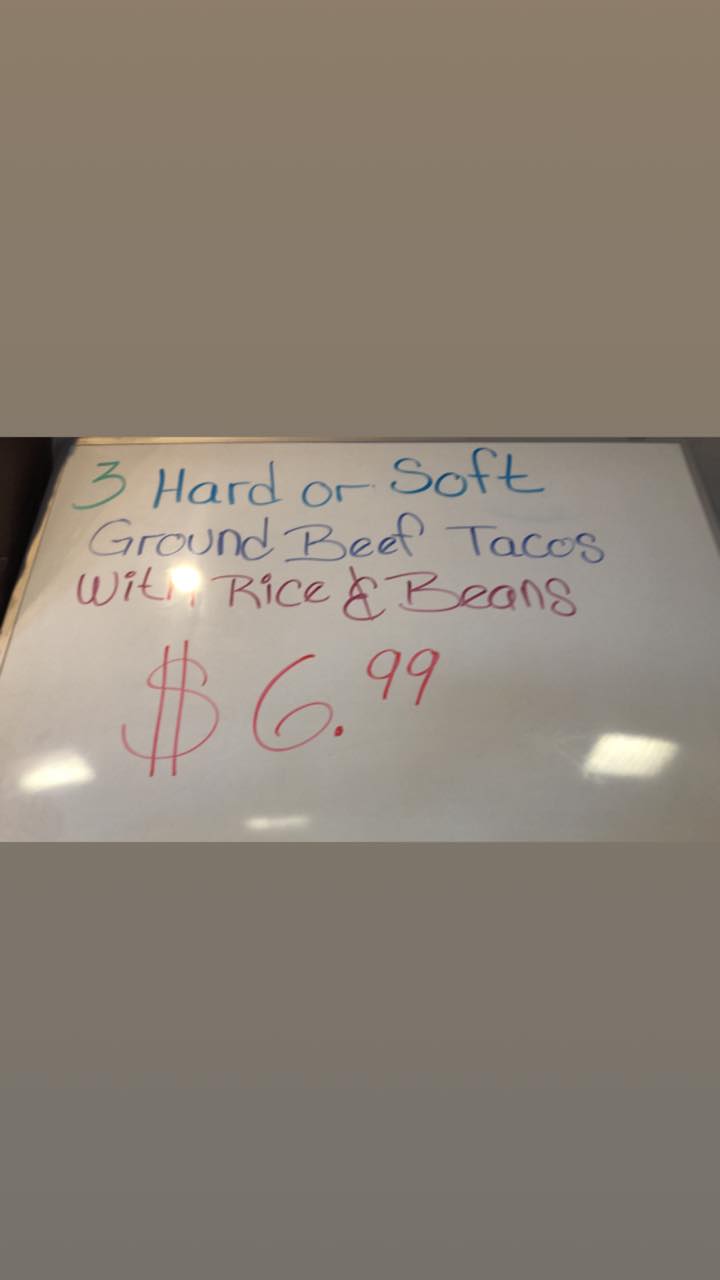 3 Hard or Soft
Ground Beef Tacos
With Rice & Beans
$6.99